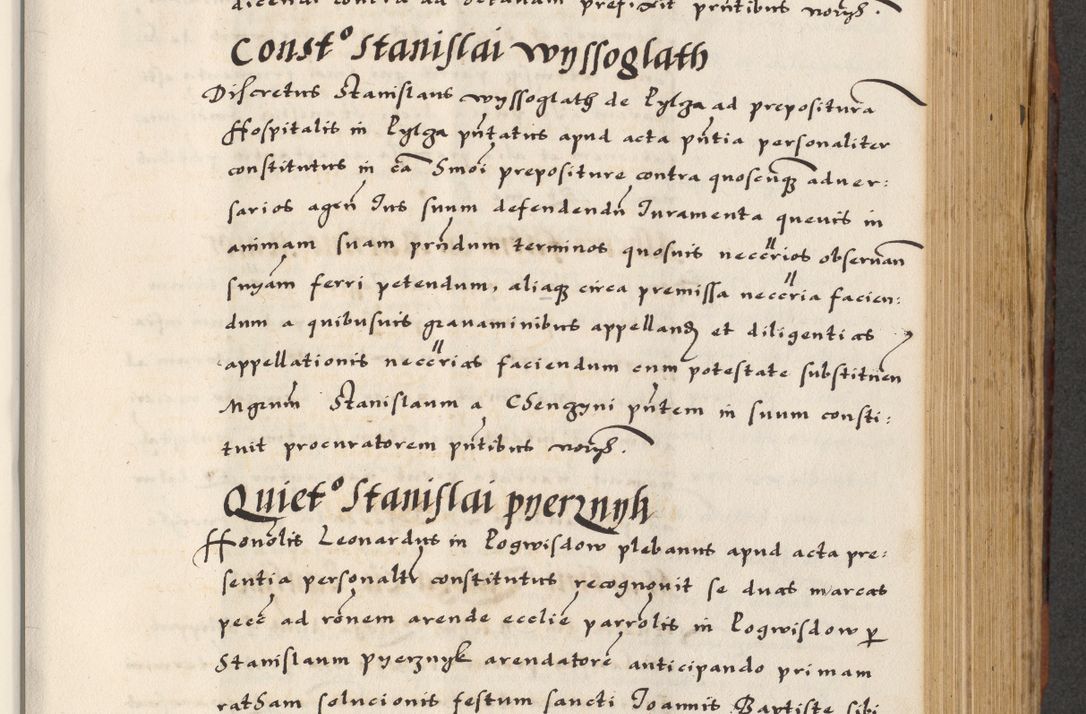 dicendi contra ad octavam prefixit pñtibus noryß.
Const° Stanislai wyssoglath
Discretus Stanislaus wyssoglath de Pylza ad preposituram
Hospitalis in Pylza pñtatus apud acta pñtia personaliter
constitutus in cã Smõi prepositure contra quoscũq adver:
sarios ageñ Jus suum defendendñ Juramenta quevis in
animam suam prñdum terminos quosvis neccẽrios observañ
snyãm ferri petendum, aliaq circa premissa neccẽria facien:
dum a quibusvis gravaminibus appellanď et diligentias
appellationis neccẽrias faciendum cum potestate substituen
Mgrum Stanislaum a Chenczyni pñtem in suum consti:
tuit procuratorem pñtibus noryß.
Quiet° Stanislai pyerznyk
Honõlis Leonardus in Rogwisdow plebanus apud acta pre:
sentia personaltr constitutus recognovit se duas marcas
pecẽ ad rõnem arende ecclie parrõlis in Rogwisdow p
Stanislaum pyerznyk arendatorẽ anticipando primam
ratham solucionis festum sancti Joannis Baptiste sibi